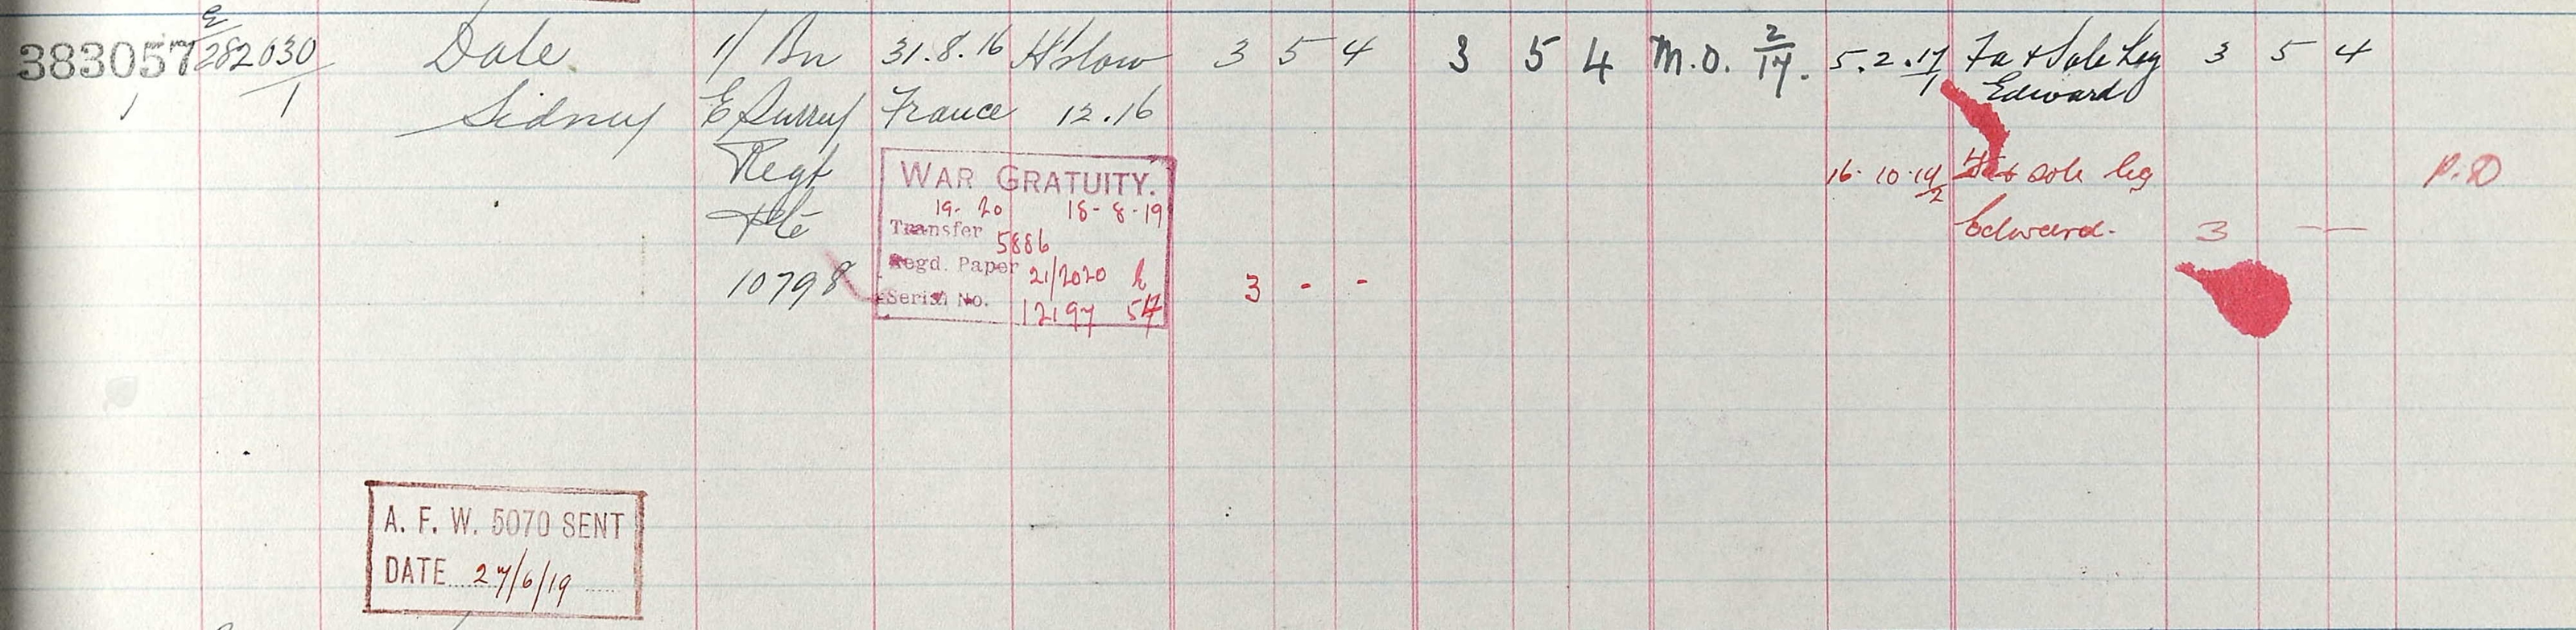 383057 E/282030/1 Dale 1/ Bn 31.8.16 H'slow 3 5 4 3 5 4 M.O. 2/17. 5.2.17/1 Fa & Sole Leg 3 5 4
1 Sidney E Surrey France 12.16 Edward
Regt WAR GRATUITY. 16.10.19/2 Fa & sole leg P.D
Pte 19-20 18-8-19 Edward. 3 — —
Transfer 5886
10798 Regd. Paper 21/2020 3 - -
Serial No. 12197 54
A. F. W. 5070 SENT
DATE 27/6/19